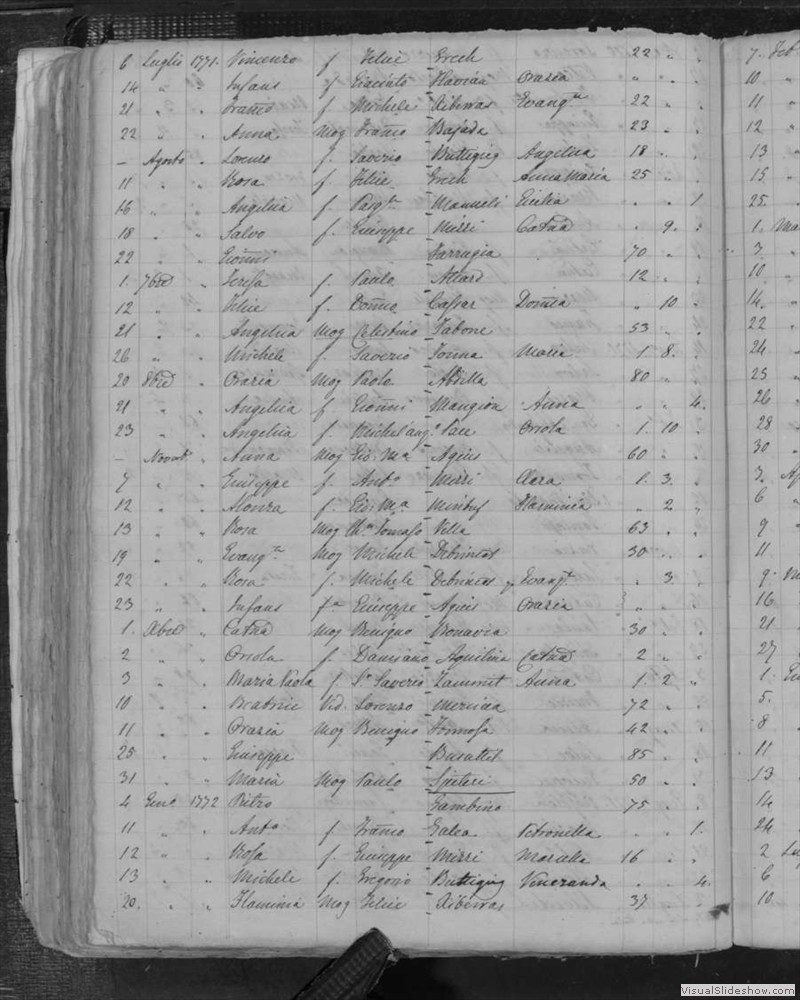 6 Luglio 1771. Vincenzo f Felice Grech 22 " .
14 " " Infans f Giaciato Flavian Grazia " . .
21 " " Franco f Michele Xiberras Evangta 22 " .
22 " . Anna Mog Franco Bajada 23 . .
– Agosto . Lorenzo f. Saverio Buttigieg Angelica 18 . .
11 . . Rosa f. Felice Grech Anna Maria 25 . .
16 " . Angelica f. Manueli . . 1
18 . " Salvo f. Giuseppe Mizzi Catna . 9. .
22 . . Gionni Farrugia 70 . .
1. 7bre . Teresa f. Paulo Attard 12 . .
12 . . Felice f. Domco Caffar Domca " 10 .
21 " . Angelica Mog Celestino Tabone 53 . .
26 " . Michele f. Saverio Tonna Maria 1 8. .
20 8bre . Grazia Mog Paolo Abdilla 80 . .
21 . . Angelica f. Gionni Mangion Anna " . 4.
23 . . Angelica f. Michelango Pace Orsola 1. 10 .
– Novem . Anna Mog Gio: Ma Agius 60 . .
7 . . Giuseppe f. Anto Mizzi Clara 1. 3. .
12 . . f. Gio: Ma Flaminia " 2 .
13 . . Rosa Mog Tomaso Vella 63 . .
19 . . Evangta Mog Michele Debrincat 30 . .
22 . . Rosa f. Michele Debrincat Evangta . 3. .
23 " . Infans fa Giuseppe Agius Grazia " . .
1. Xbre " Catna Mog Benigno Bonavia 30 . .
2 " . Orsola f Damiano Aquilina Catna 2 " .
3 " . Maria Paola f Sr Saverio Zammit Anna 1. 2 "
10 . . Beatrice Vid. Lorenzo Mercieca 72 . .
11 . . Grazia Mog Benigno Formosa 42 . .
25 . . Giuseppe Busuttil 85 . .
31 . . Maria Mog Paulo Spiteri 50 . .
4 Genr 1772 Pietro Gambino 75 . .
11 . . Anto f Franco Galea Petronilla . . 1.
12 " . Rosa f. Giuseppe Mizzi Marietta 16 . .
13 . . Michele f. Gregorio Buttigieg Veneranda . . 4.
20. . . Flaminia Mog Felice Xiberras 37 . .
7. Feb
10
11
12
13
15
25.
1. Ma
3
10
14.
22
24
25
26
28
30
3. Ap
6
9
11
9. M
16
21
27
1.
5.
8
11
13
14
24
2 Lu
6
10
VisualSlideshow.com